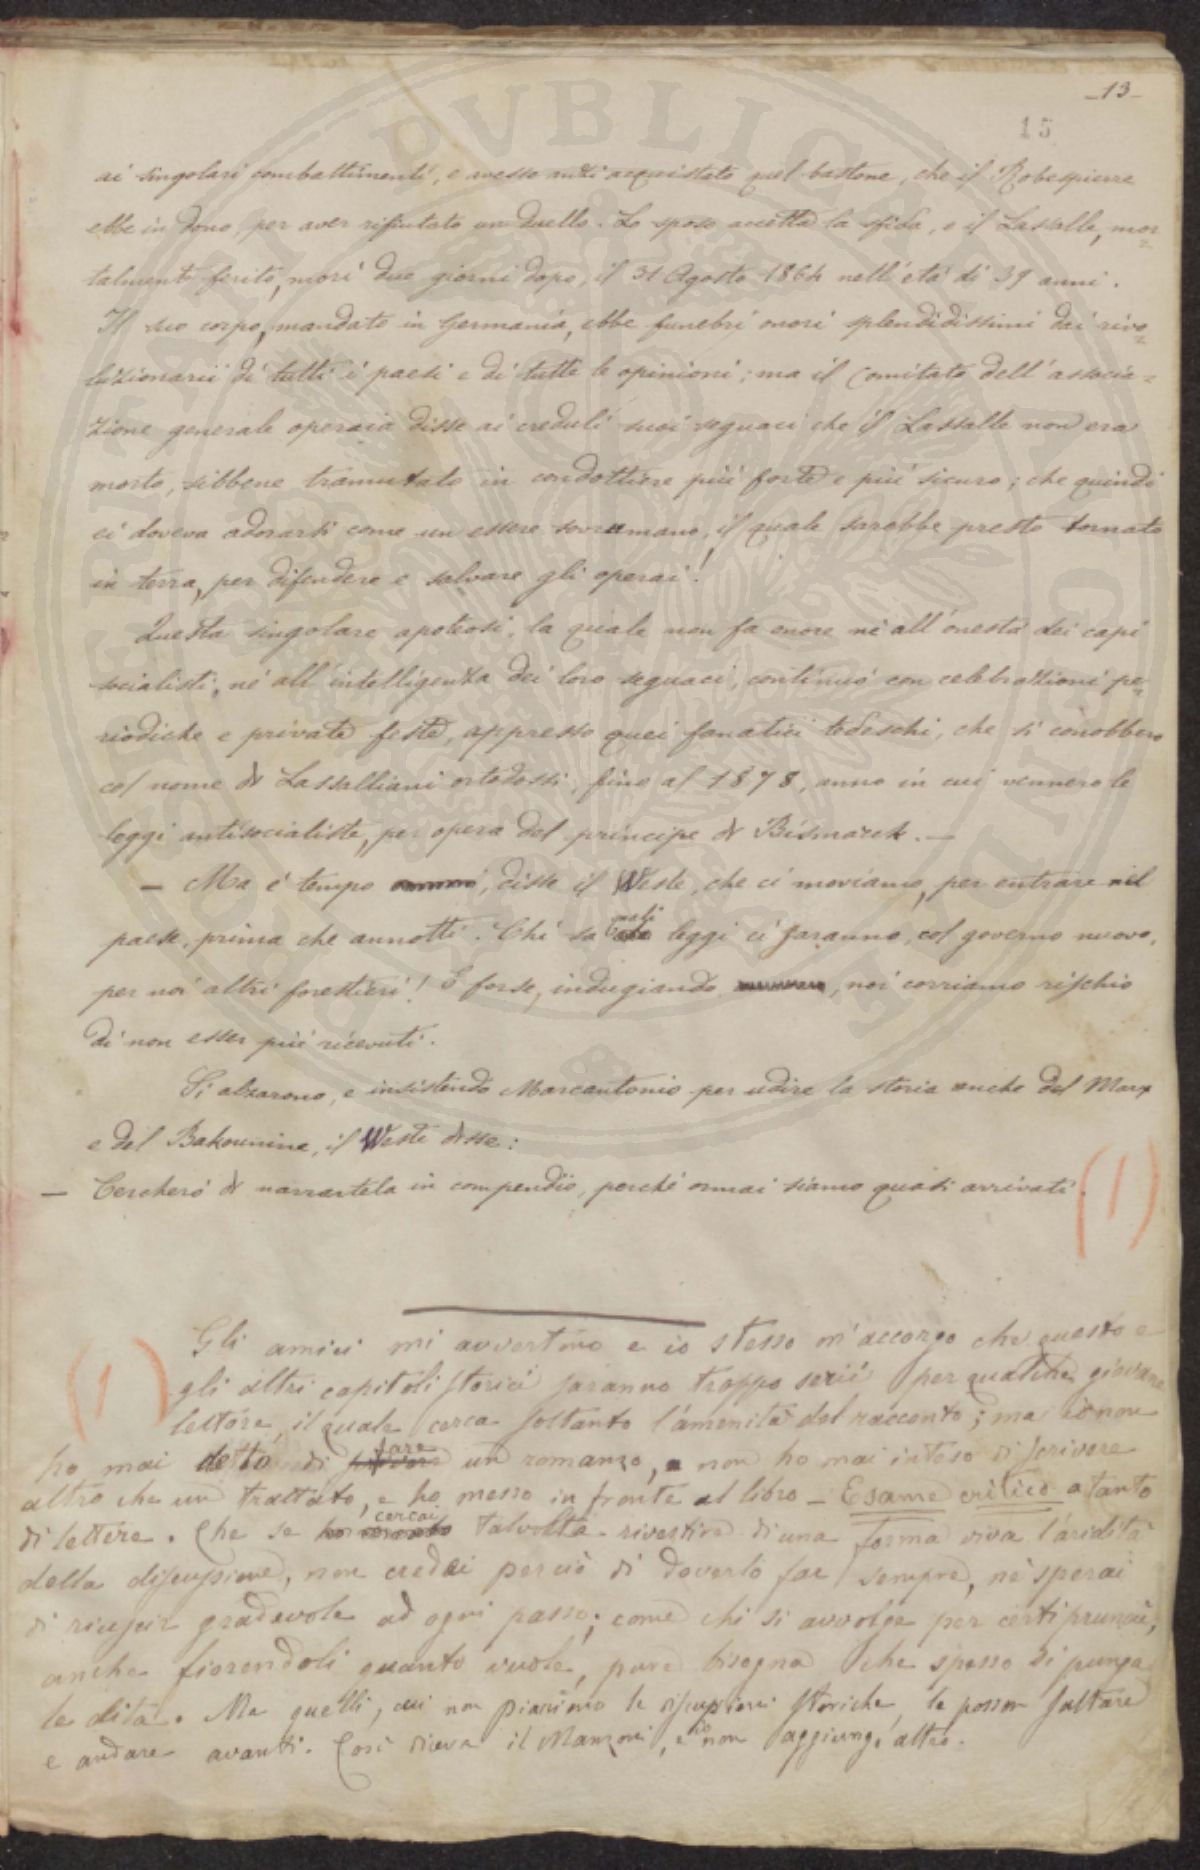 -13-
15
ai singolari combattimenti, e avesse anzi acquistato quel bastone, che il Robespierre
ebbe in dono, per aver rifiutato un duello. Lo sposo accettò la sfida, e il Lassalle, mor=
talmente ferito, morì due giorni dopo, il 31 Agosto 1864 nell'età di 39 anni.
Il suo corpo, mandato in Germania, ebbe funebri onori splendidissimi dai rivo=
luzionarii di tutti i paesi e di tutte le opinioni; ma il Comitato dell'associa=
zione generale operaia disse ai creduli suoi seguaci che il Lassalle non era
morto, sibbene tramutato in condottiere più forte e più sicuro; che quindi
ei doveva adorarsi come un essere sovrumano, il quale sarebbe presto tornato
in terra, per difendere e salvare gli operai!
Questa singolare apoteosi, la quale non fa onore nè all'onestà dei capi
socialisti, nè all'intelligenza dei loro seguaci, continuò con celebrazioni pe=
riodiche e private feste, appresso quei fanatici tedeschi, che si conobbero
col nome di Lassalliani ortodossi, fino al 1878, anno in cui vennero le
leggi antisocialiste, per opera del principe di Bismarck. —
— Ma è tempo, disse il Weste, che ci moviamo, per entrare nel
paese, prima che annotti. Chi sa quali leggi ci saranno, col governo nuovo,
per noi altri forestieri! E forse, indugiando, noi corriamo rischio
di non esser più ricevuti.
Si alzarono, e insistendo Marcantonio per udire la storia anche del Marx
e del Bakounine, il Weste disse:
— Cercherò di narrartela in compendio, perché ormai siamo quasi arrivati. (1)
(1) Gli amici mi avvertono e io stesso m'accorgo che questo e
gli altri capitoli storici saranno troppo serii per qualche giovane
lettore, il quale cerca soltanto l'amenità del racconto; ma io non
ho mai detto di fare un romanzo, e non ho mai inteso di scrivere
altro che un trattato, e ho messo in fronte al libro — Esame critico a tanto
di lettere. Che se cercai talvolta rivestire di una forma viva l'aridità
della discussione, non credei perciò di doverlo far sempre, nè sperai
di riuscir gradevole ad ogni passo; come chi si avvolge per certi prunai,
anche fiorendoli quanto vuole, pure bisogna che spesso si punga
le dita. Ma quelli, cui non piacciono le discussioni storiche, le posson saltare
e andare avanti. Così diceva il Manzoni, e io non aggiungo altro.